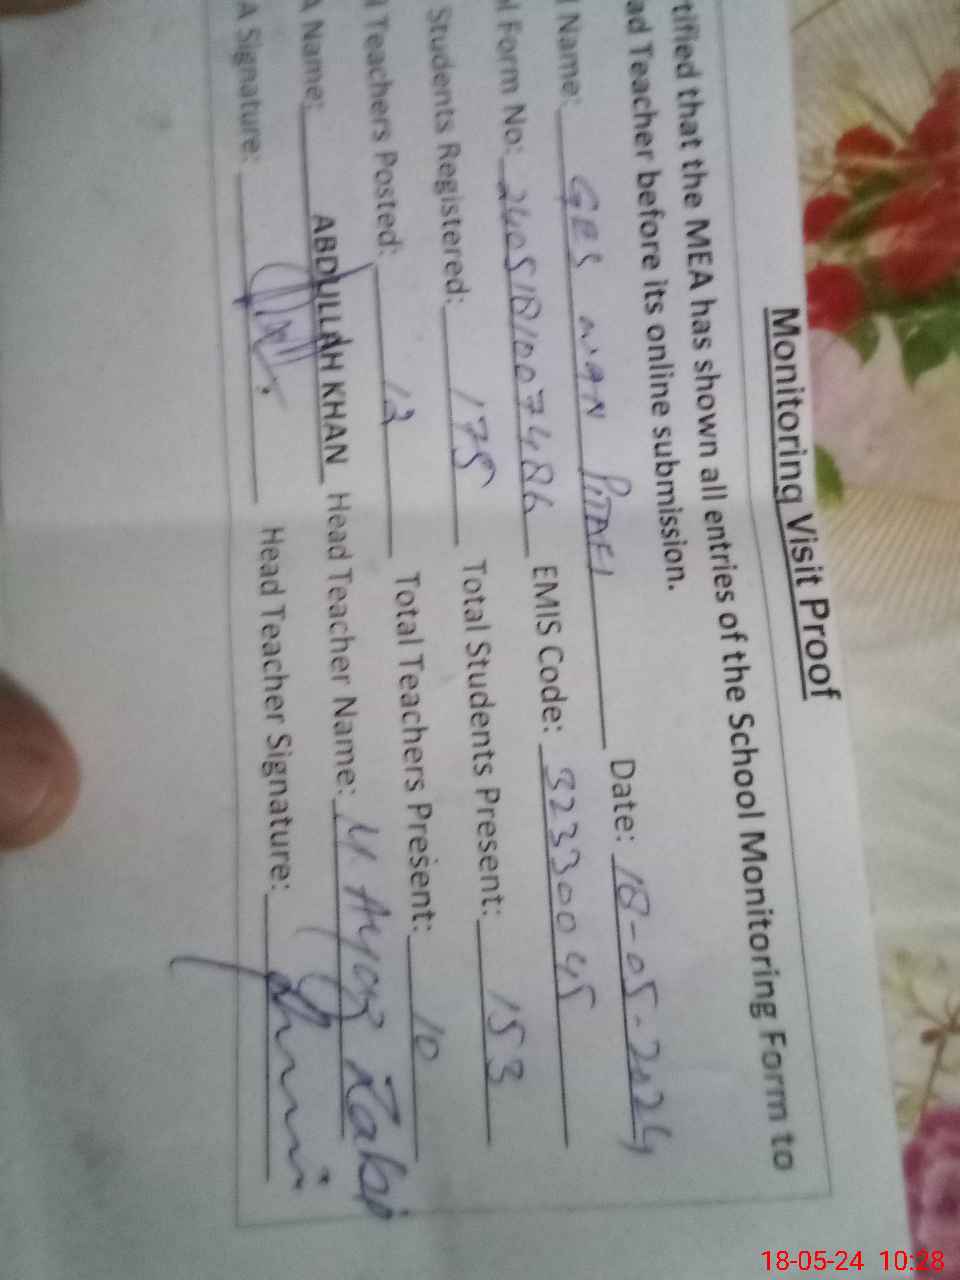 Monitoring Visit Proof
tified that the MEA has shown all entries of the School Monitoring Form to
ad Teacher before its online submission.
l Name: GES WAN PITAFI Date: 18-05-2024
l Form No: 2405181007486 EMIS Code: 32330045
Students Registered: 175 Total Students Present: 153
l Teachers Posted: 12 Total Teachers Present: 10
A Name: ABDULLAH KHAN Head Teacher Name: M. Ayaz
A Signature: Head Teacher Signature:
18-05-24 10:28